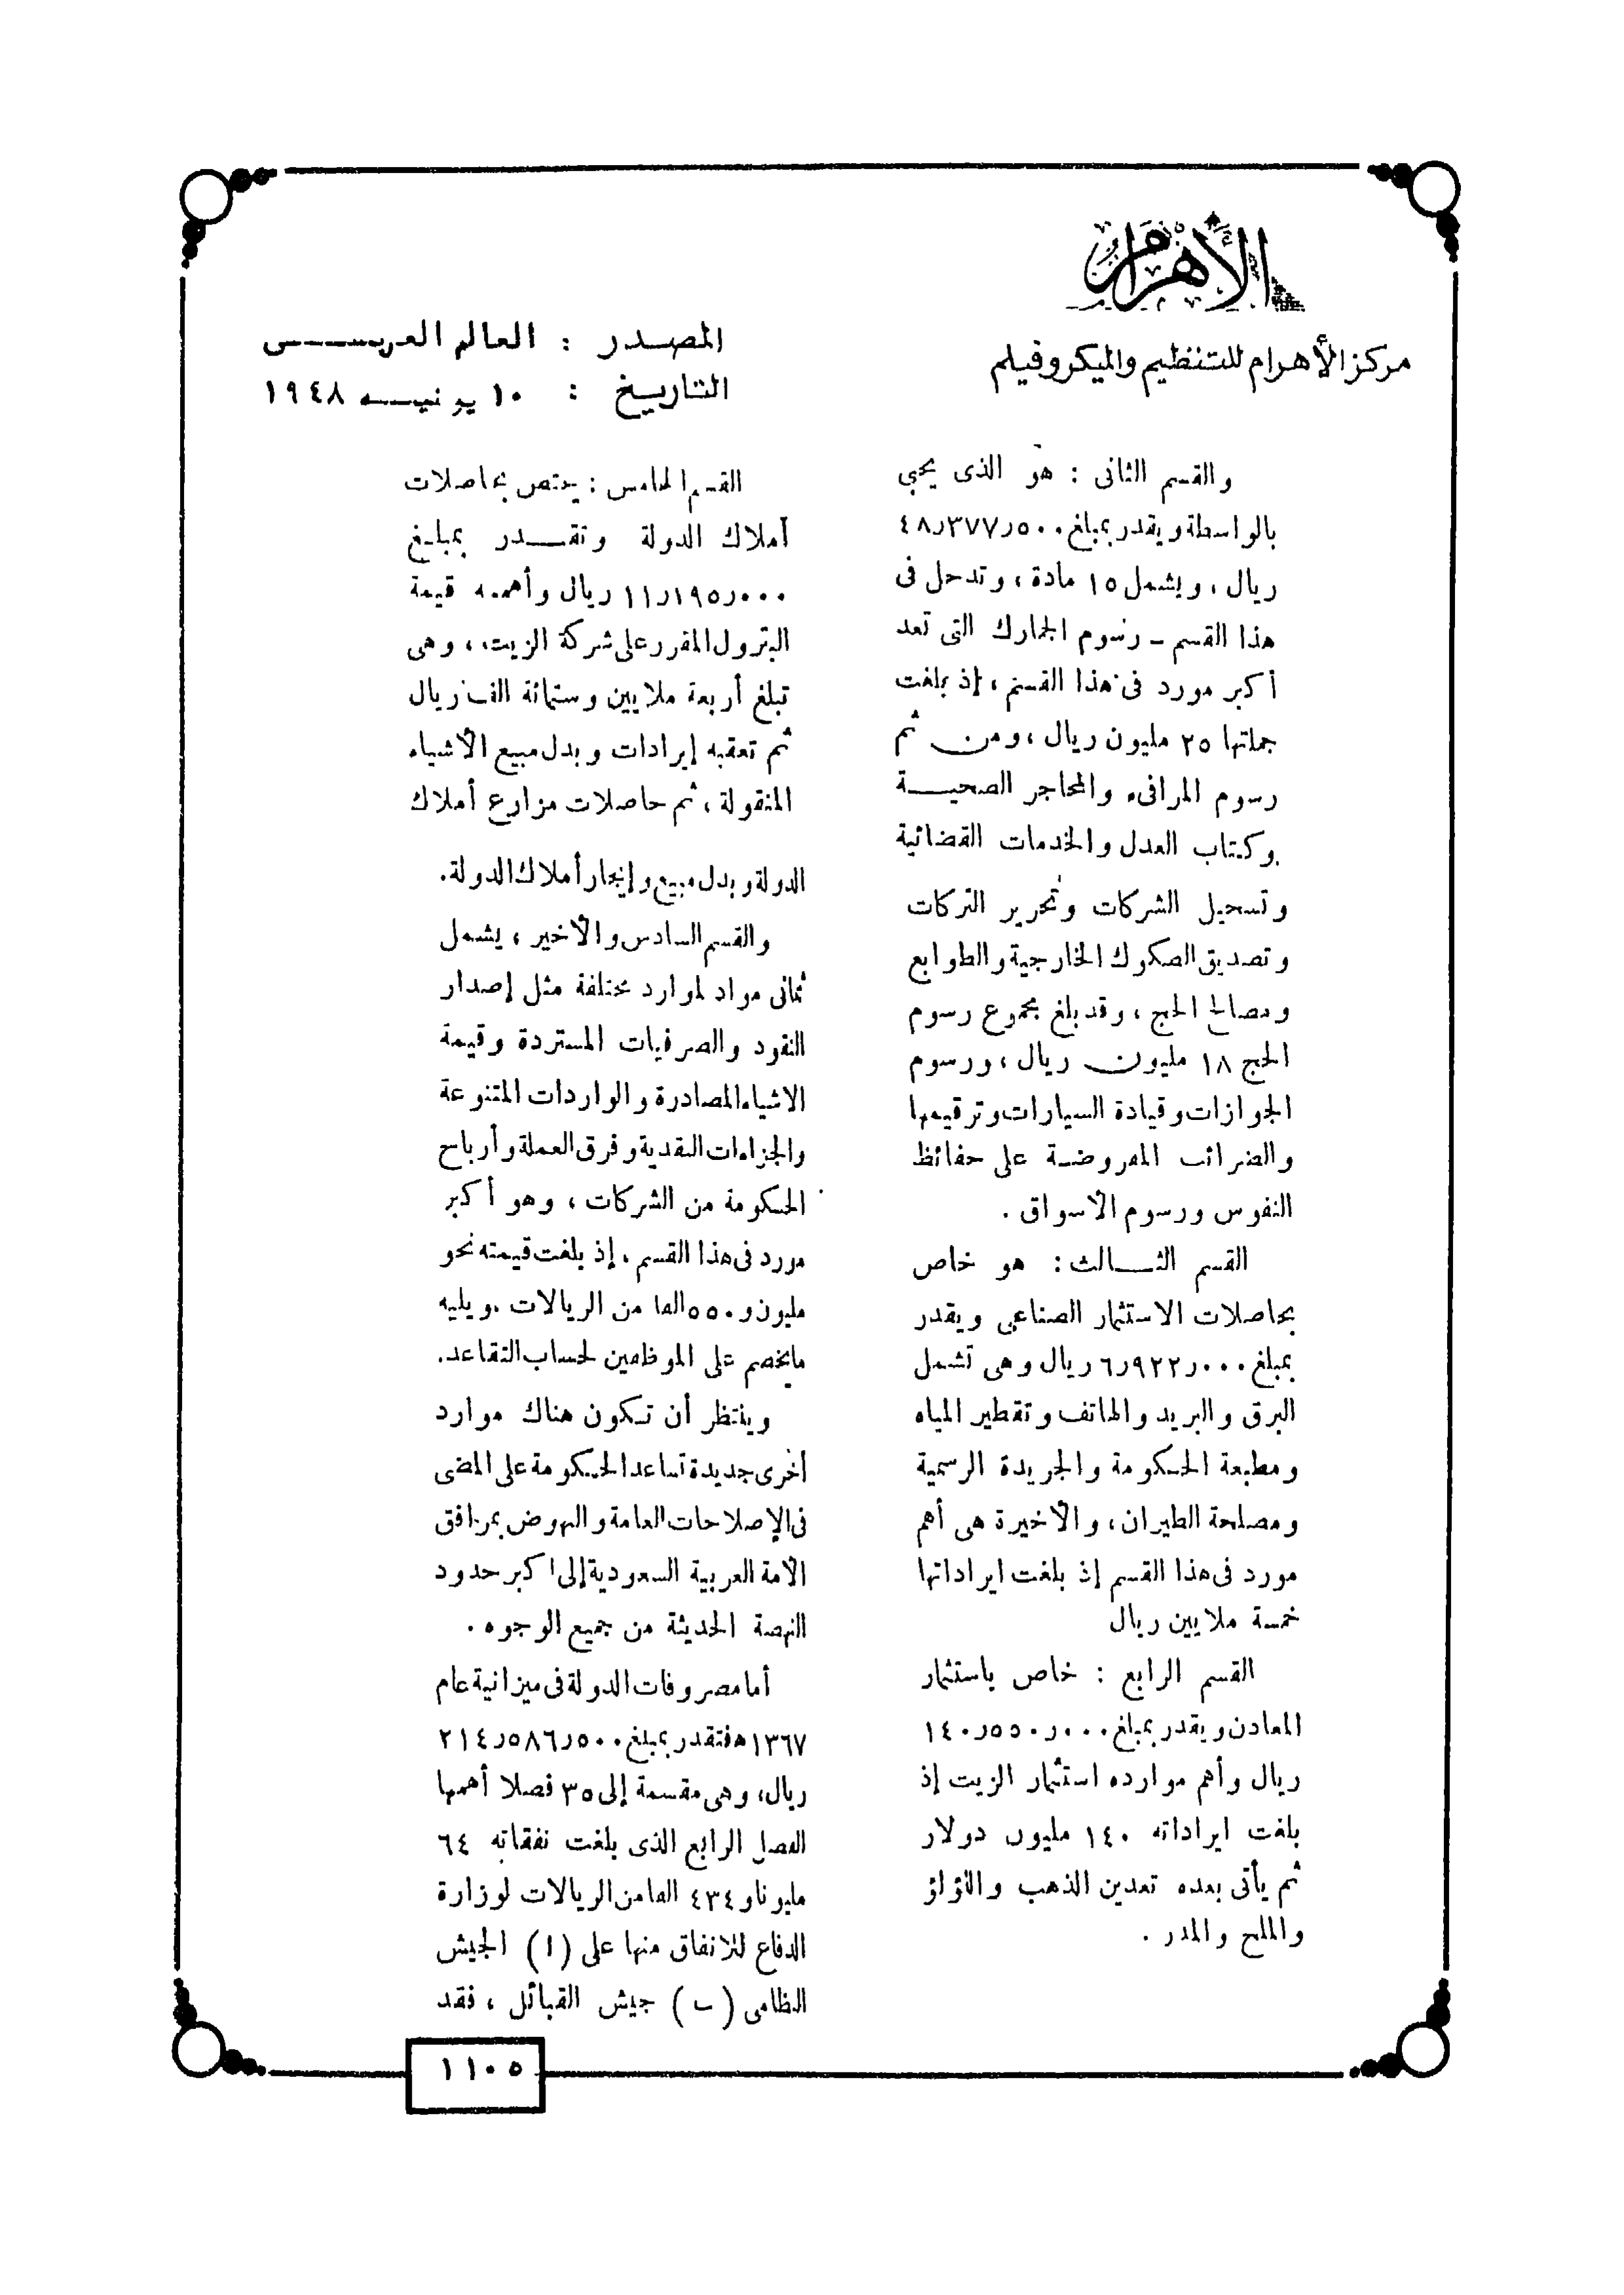 الأهرام
مركز الأهرام للتنظيم والميكروفيلم
المصدر : العالم العربى
التاريخ : ١٠ يونيه ١٩٤٨
والقسم الثانى : هو الذى يجبى
بالواسطة ويقدر بمبلغ ٤٨٫٣٧٧٫٥٠٠
ريال ، ويشمل ١٥ مادة ، وتدخل فى
هذا القسم ـ رسوم الجمارك التى تعد
أكبر مورد فى هذا القسم ، إذ بلغت
جملتها ٢٥ مليون ريال ، ومن ثم
رسوم المرافىء والمحاجر الصحية
وكتاب العدل والخدمات القضائية
وتسجيل الشركات وتحرير التركات
وتصديق الصكوك الخارجية والطوابع
ومصالح الحج ، وقد بلغ مجموع رسوم
الحج ١٨ مليون ريال ، ورسوم
الجوازات وقيادة السيارات وترقيمها
والضرائب المفروضة على حفائظ
النفوس ورسوم الأسواق .
القسم الثالث : هو خاص
بحاصلات الاستثمار الصناعى ويقدر
بمبلغ ٦٫٩٢٢٫٠٠٠ ريال وهى تشمل
البرق والبريد والهاتف وتقطير المياه
ومطبعة الحكومة والجريدة الرسمية
ومصلحة الطيران ، والأخيرة هى أهم
مورد فى هذا القسم إذ بلغت ايراداتها
خمسة ملايين ريال
القسم الرابع : خاص باستثمار
المعادن ويقدر بمبلغ ١٤٠٫٥٥٠٫٠٠٠
ريال وأهم موارده استثمار الزيت إذ
بلغت ايراداته ١٤٠ مليون دولار
ثم يأتى بعده تعدين الذهب واللؤلؤ
والملح والمدر .
القسم الخامس : يختص بحاصلات
أملاك الدولة وتقدر بمبلغ
١١٫١٩٥٫٠٠٠ ريال وأهمه قيمة
البترول المقرر على شركة الزيت ، وهى
تبلغ أربعة ملايين وستمائة الف ريال
ثم تعقبه إيرادات وبدل مبيع الأشياء
المنقولة ، ثم حاصلات مزارع أملاك
الدولة وبدل مبيع وإيجار أملاك الدولة.
والقسم السادس والأخير ، يشمل
ثمانى مواد لموارد مختلفة مثل إصدار
النقود والصرفيات المستردة وقيمة
الاشياء المصادرة والواردات المتنوعة
والجزاءات النقدية وفرق العملة وأرباح
الحكومة من الشركات ، وهو أكبر
مورد فى هذا القسم ، إذ بلغت قيمته نحو
مليون و٥٥٠ الفا من الريالات . ويليه
مايخصم على الموظفين لحساب التقاعد.
وينتظر أن تكون هناك موارد
أخرى جديدة تساعد الحكومة على المضى
فى الإصلاحات العامة والنهوض بمرافق
الأمة العربية السعودية إلى اكبر حدود
النهضة الحديثة من جميع الوجوه .
أما مصروفات الدولة فى ميزانية عام
١٣٦٧ ه فتقدر بمبلغ ٢١٤٫٥٨٦٫٥٠٠
ريال ، وهى مقسمة إلى ٣٥ فصلا أهمها
الفصل الرابع الذى بلغت نفقاته ٦٤
مليونا و ٤٣٤ الفا من الريالات لوزارة
الدفاع للانفاق منها على (ا) الجيش
النظامى (ب) جيش القبائل ، فقد
١١٠٥